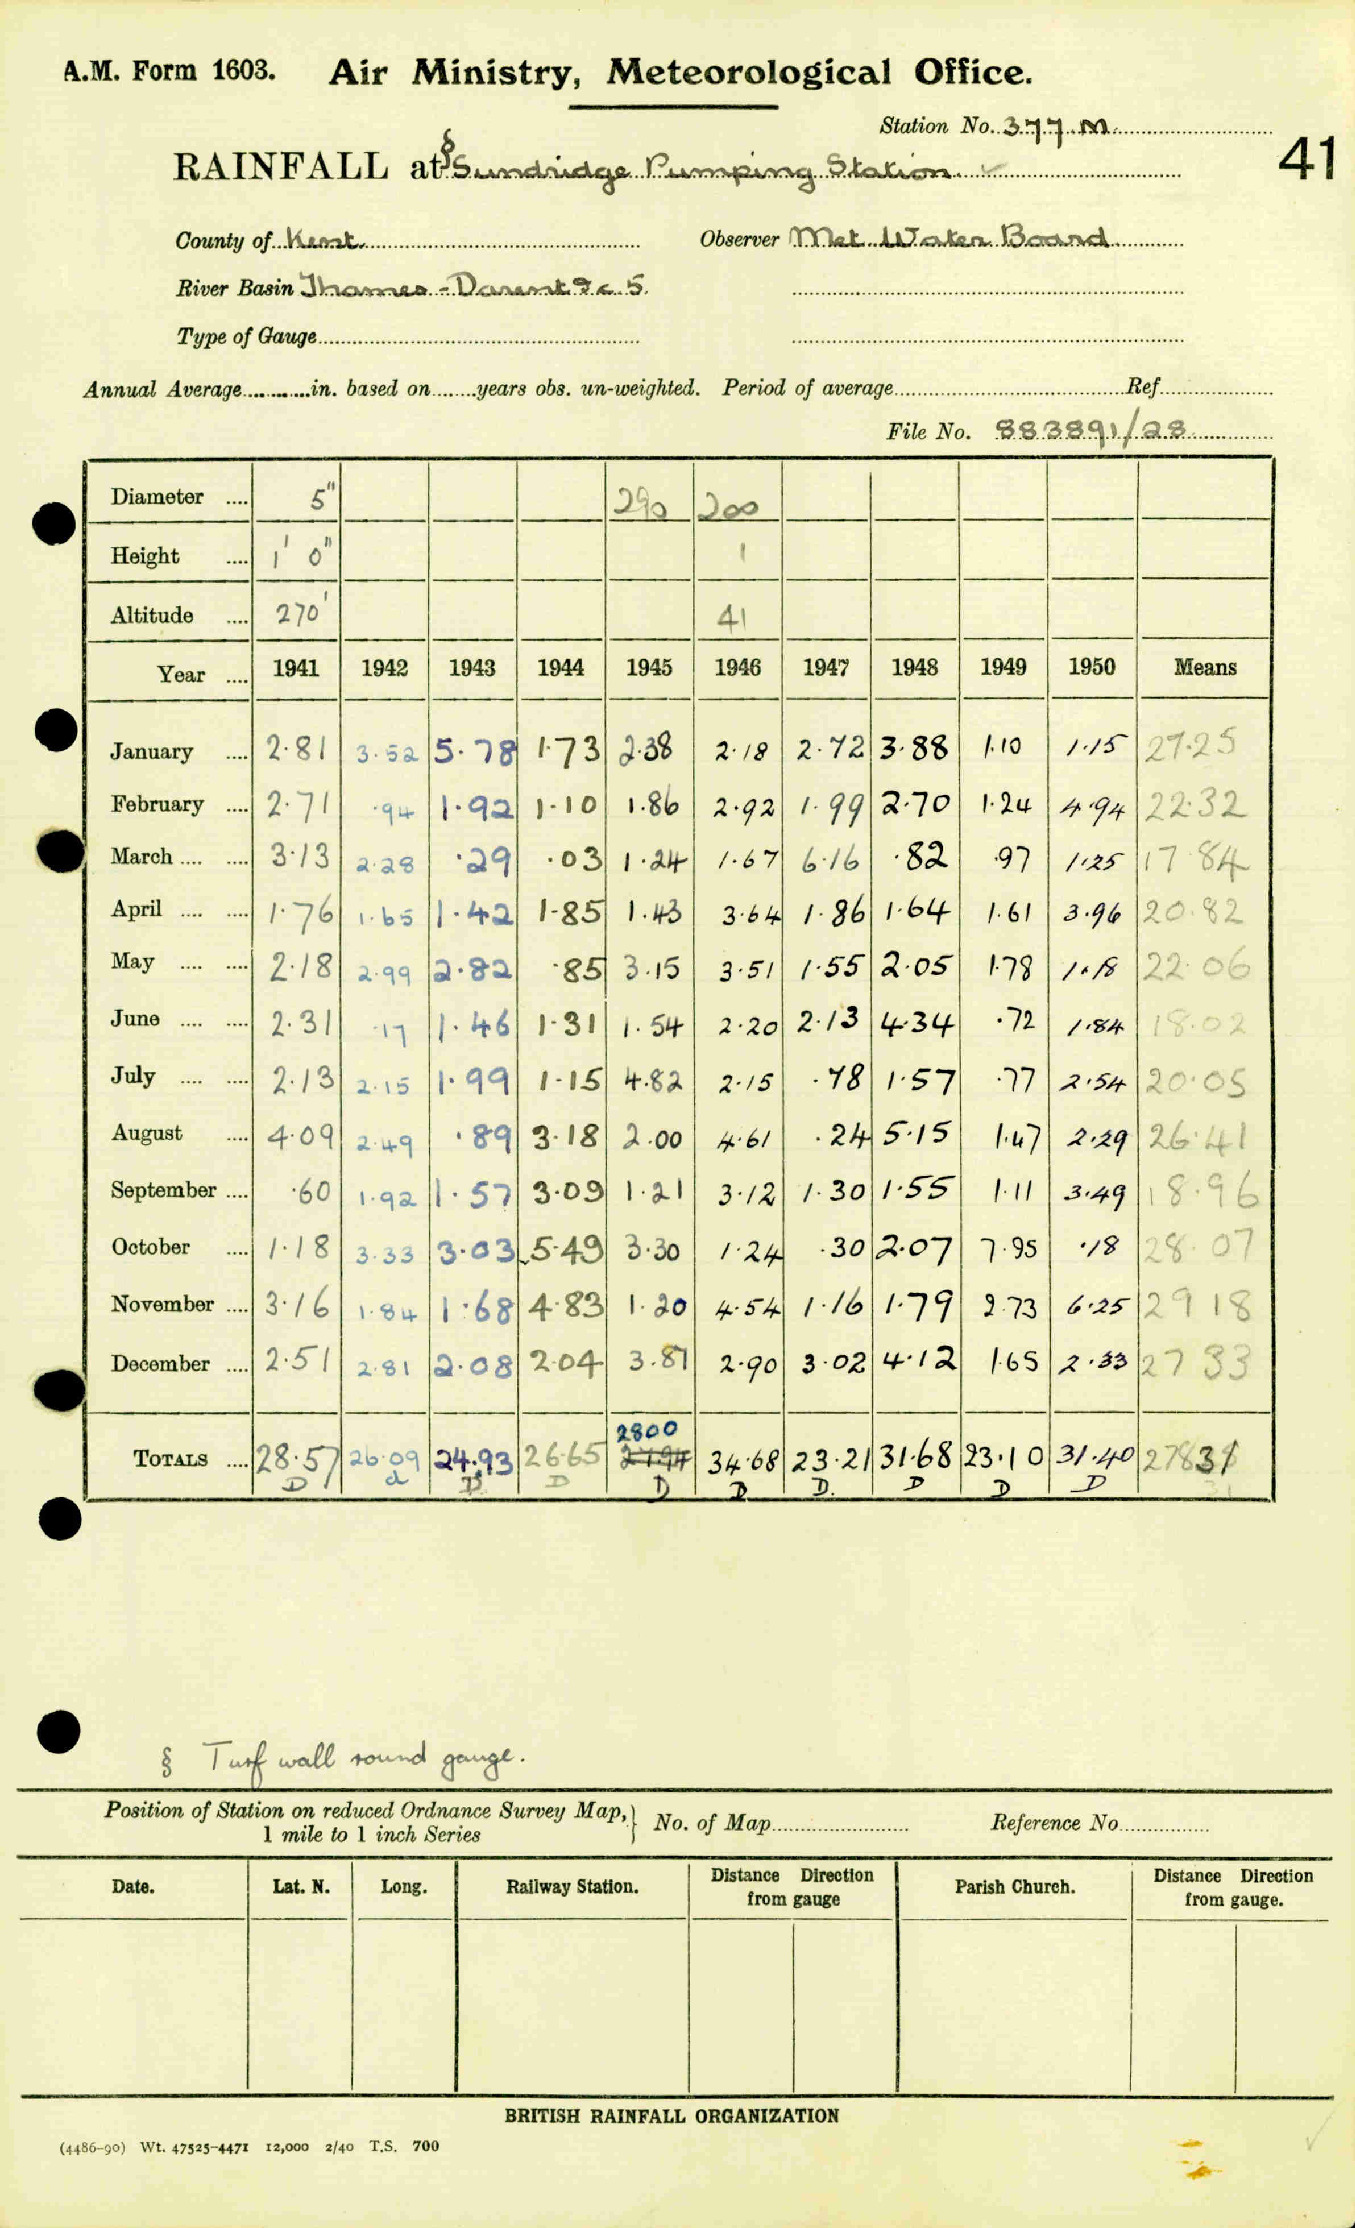 A.M. Form 1603. Air Ministry, Meteorological Office.
Station No. 377.M.
41
RAINFALL at § Sundridge Pumping Station. ✓
County of Kent. Observer Met. Water Board
River Basin Thames - Darent 9c 5.
Type of Gauge
Annual Average in. based on years obs. un-weighted. Period of average Ref.
File No. 883891/28
Diameter .... 5" 290 200
Height .... 1' 0" 1
Altitude .... 270' 41
Year .... 1941 1942 1943 1944 1945 1946 1947 1948 1949 1950 Means
January .... 2.81 3.52 5.78 1.73 2.38 2.18 2.72 3.88 1.10 1.15 27.25
February .... 2.71 .94 1.92 1.10 1.86 2.92 1.99 2.70 1.24 4.94 22.32
March .... .... 3.13 2.28 .29 .03 1.24 1.67 6.16 .82 .97 1.25 17.84
April .... .... 1.76 1.65 1.42 1.85 1.43 3.64 1.86 1.64 1.61 3.96 20.82
May .... .... 2.18 2.99 2.82 .85 3.15 3.51 1.55 2.05 1.78 1.18 22.06
June .... .... 2.31 .17 1.46 1.31 1.54 2.20 2.13 4.34 .72 1.84 18.02
July .... .... 2.13 2.15 1.99 1.15 4.82 2.15 .78 1.57 .77 2.54 20.05
August .... 4.09 2.49 .89 3.18 2.00 4.61 .24 5.15 1.47 2.29 26.41
September .... .60 1.92 1.57 3.09 1.21 3.12 1.30 1.55 1.11 3.49 18.96
October .... 1.18 3.33 3.03 5.49 3.30 1.24 .30 2.07 7.95 .18 28.07
November .... 3.16 1.84 1.68 4.83 1.20 4.54 1.16 1.79 2.73 6.25 29 18
December .... 2.51 2.81 2.08 2.04 3.87 2.90 3.02 4.12 1.65 2.33 27 33
2800
TOTALS .... 28.57 26.09 24.93 26.65 27.94 34.68 23.21 31.68 23.10 31.40 278 31
D d D D D D D. D D D 31
§ Turf wall round gauge.
Position of Station on reduced Ordnance Survey Map, 1 mile to 1 inch Series } No. of Map Reference No.
Date. Lat. N. Long. Railway Station. Distance Direction from gauge Parish Church. Distance Direction from gauge.
BRITISH RAINFALL ORGANIZATION
(4486-90) Wt. 47525-4471 12,000 2/40 T.S. 700